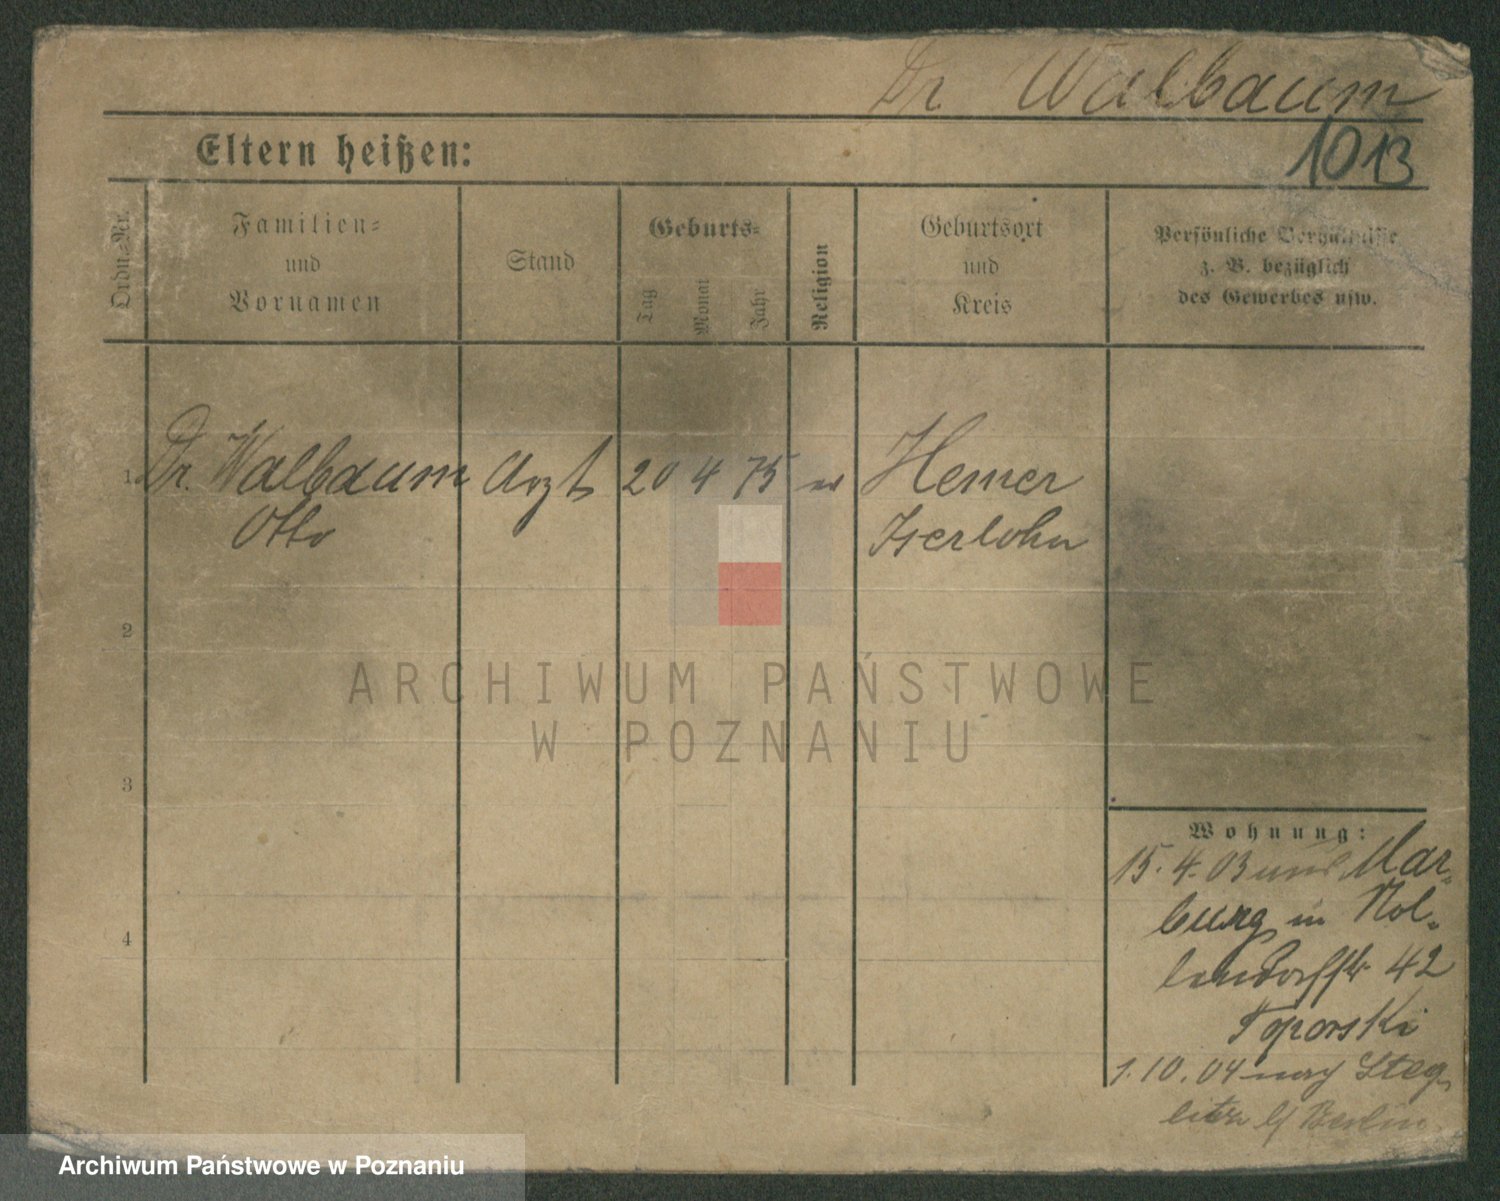 Dr Walbaum
Eltern heißen:
1013
Ordn.-Nr.
Familien-
und
Vornamen
Stand
Geburts-
Tag
Monat
Jahr
Religion
Geburtsort
und
Kreis
Persönliche Verhältnisse
z. B. bezüglich
des Gewerbes usw.
1 Dr. Walbaum Arzt 20 4 75 ev Hemer
Otto Iserlohn
2
3
4
Wohnung:
15. 4. 03 aus Mar-
burg in Nol-
lendorffstr 42
Toporski
1. 10. 04 nach Steg-
litz b/ Berlin.
ARCHIWUM PAŃSTWOWE
W POZNANIU
Archiwum Państwowe w Poznaniu